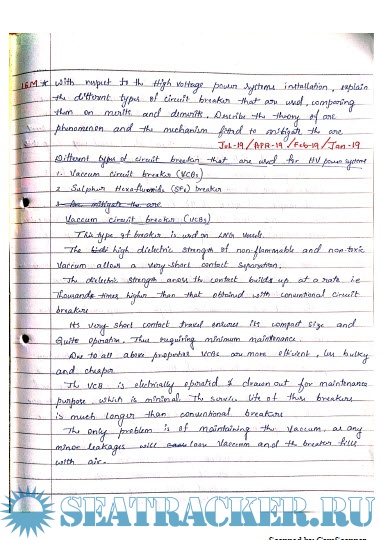 16M * With respect to the High voltage power systems installation, explain
the different types of circuit breaker that are used, comparing
them on merits and demerits, Describe the theory of arc
phenomenon and the mechanism fitted to mitigate the arc
Jul-19 / APR-19 / Feb-19 / Jan-19
Different types of circuit breaker that are used for HV power systems
1. Vaccum circuit breaker (VCBs)
2 Sulphur Hexafluoride (SF6) breaker
3. Arc mitigate the arc
Vaccum circuit breaker (VCBs)
This type of breaker is used on LNG Vessels.
The high dielectric strength of non-flammable and non-toxic
Vaccum allows a very-short contact separation.
The dielectric strength across the contact builds up at a rate i.e
Thousands times higher than that obtained with conventional circuit
breakers
Its very short contact travel ensures its compact size and
Quite operation. Thus requiring minimum maintenance.
Due to all above properties VCBs are more efficient, less bulky
and cheaper
The VCB is eletrially operated & drawn out for maintenance
purpose, which is minimal. The service life of these breakers
is much longer than conventional breakers
The only problem is of maintaining the Vaccum, as any
minor leakages will loose Vaccum and the breaker fills
with air.
SEATRACKER.RU
Scanned by CamScanner